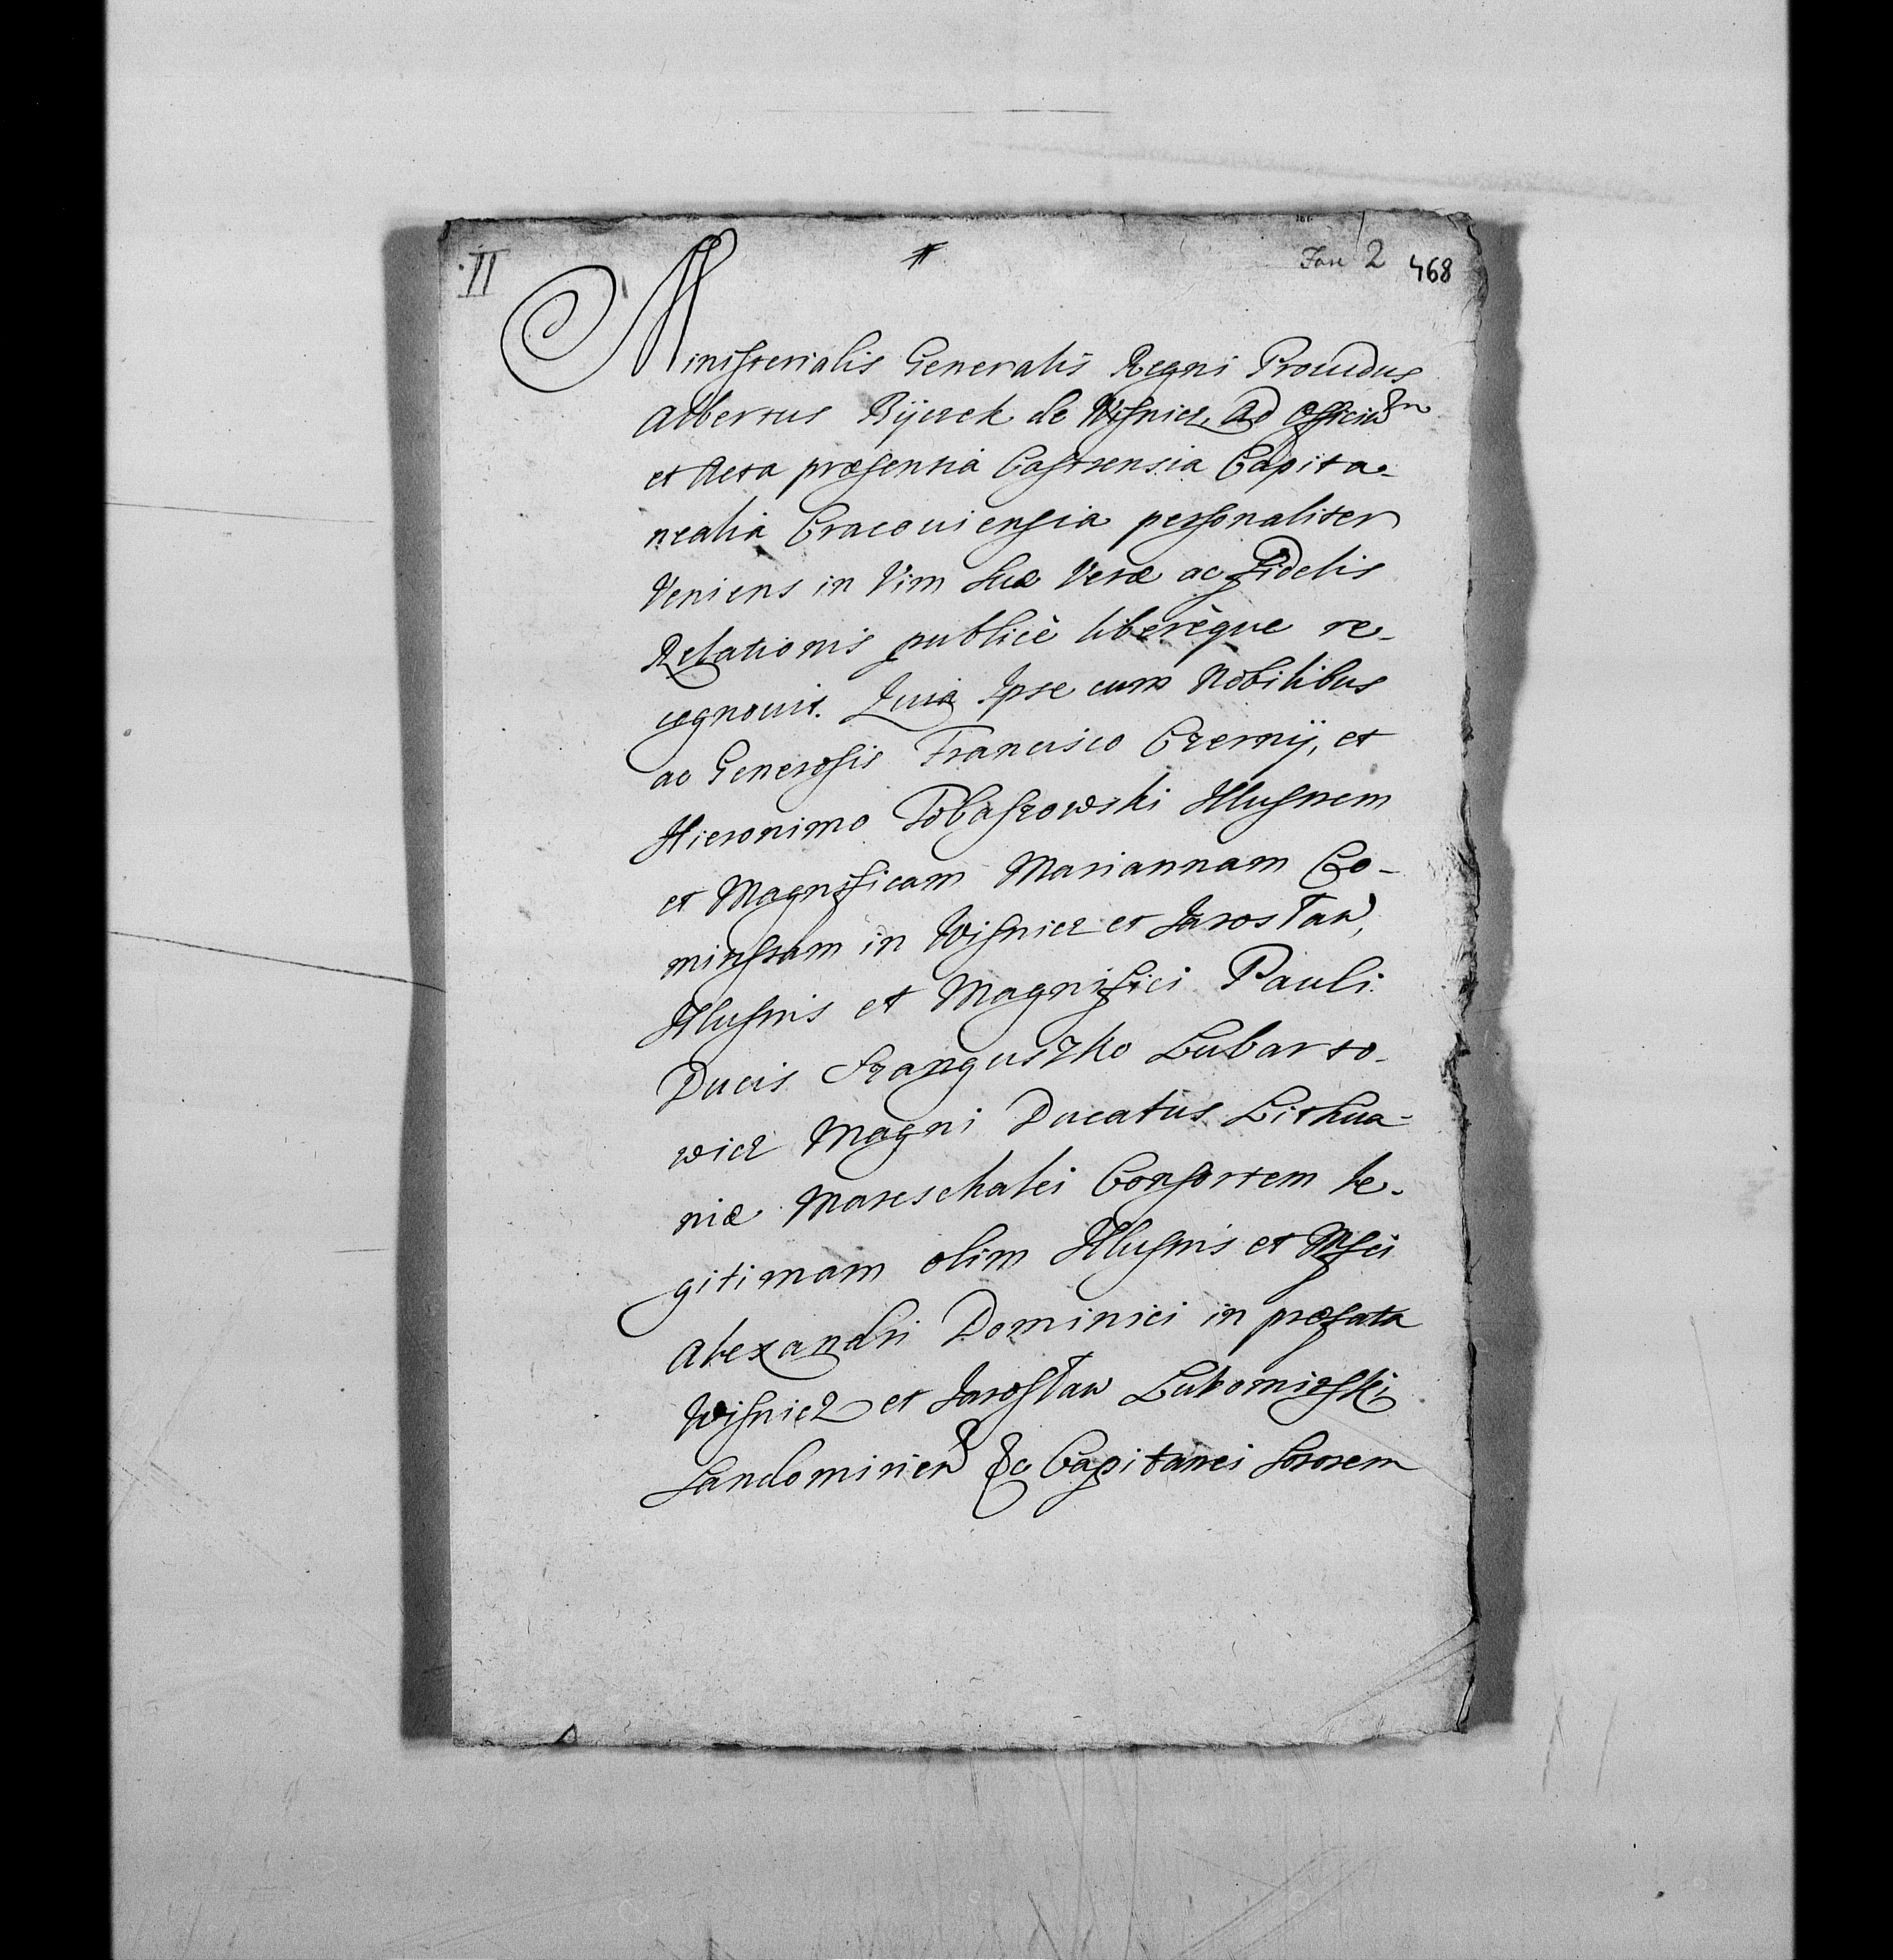 II # Fasc 2 468
Ministerialis Generalis Regni Prouidus
Albertus Bÿczek de Wisnicz, Ad Officium
et Acta præsentia Castrensia Capita-
nealia Cracouiensia personaliter
Veniens in Vim suæ Veræ ac Fidelis
Relationis publicè liberèque re-
cognouit. Quia Ipse cum Nobilibus
ac Generosis Francisco Czernÿ, et
Hieronimo Tobaszowski Illustrem
et Magnificam Mariannam Co-
mitissam in Wisnicz et Jarosław,
Illustris et Magnifici Pauli
Ducis Szanguszko Lubarto-
wicz Magni Ducatus Lithua-
niæ Mareschalci Consortem le-
gitimam olim Illustris et Mfci
Alexandri Dominici in præfata
Wisnicz et Jarosław Lubomirski,
Sandomirien &c Capitanei Sororem